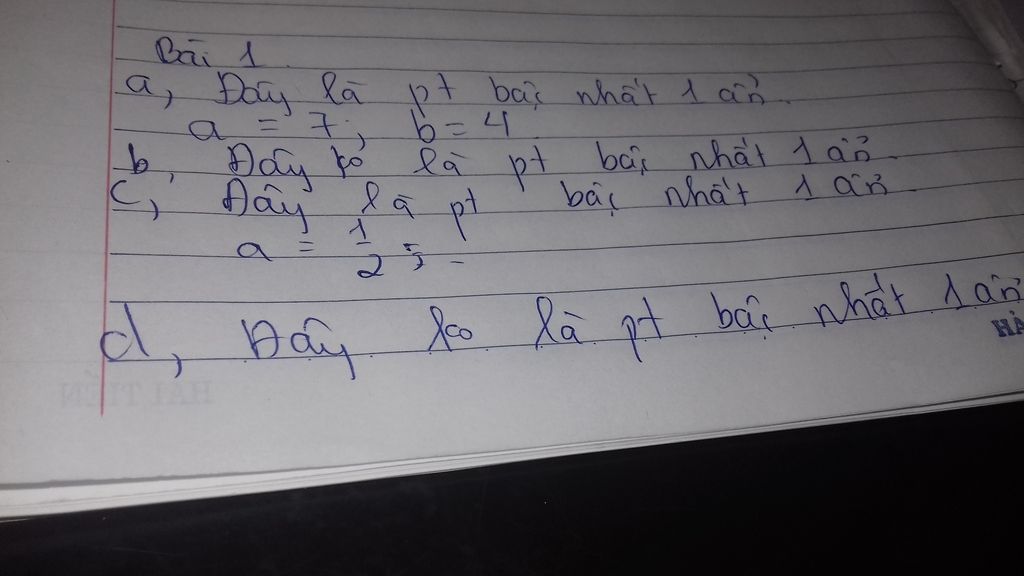 Bài 1.
a, Đây là pt bậc nhất 1 ẩn.
a = 7; b = 4
b, Đây ko là pt bậc nhất 1 ẩn.
c, Đây là pt bậc nhất 1 ẩn.
a = 1/2 ; -
d, Đây ko là pt bậc nhất 1 ẩn